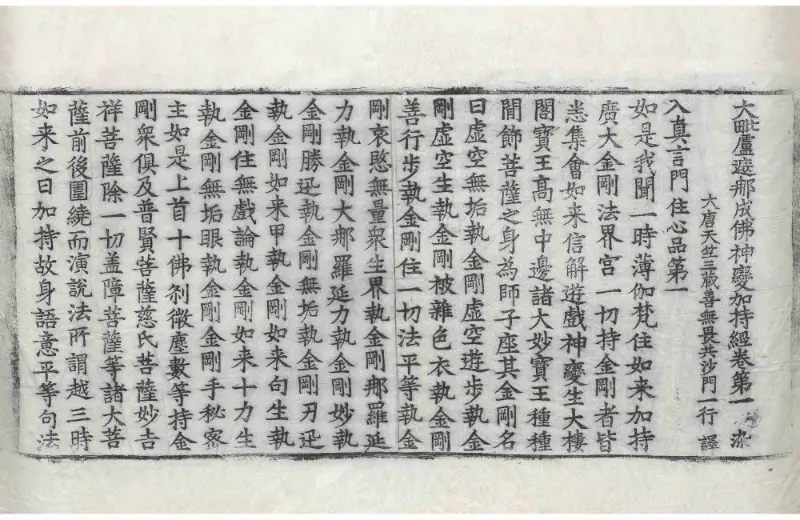 大毗盧遮那成佛神變加持經卷第一 染
大唐天竺三藏善無畏共沙門一行 譯
入真言門住心品第一
如是我聞一時薄伽梵住如来加持
廣大金剛法界宮一切持金剛者皆
悉集會如来信解遊戲神變生大樓
閣寶王高無中邊諸大妙寶王種種
閒飾菩薩之身為師子座其金剛名
曰虛空無垢執金剛虛空遊步執金
剛虛空生執金剛被雜色衣執金剛
善行步執金剛住一切法平等執金
剛哀愍無量衆生界執金剛那羅延
力執金剛大那羅延力執金剛妙執
金剛勝迅執金剛無垢執金剛刃迅
執金剛如来甲執金剛如来句生執
金剛住無戲論執金剛如来十力生
執金剛無垢眼執金剛金剛手秘密
主如是上首十佛刹微塵數等持金
剛衆俱及普賢菩薩慈氏菩薩妙吉
祥菩薩除一切盖障菩薩等諸大菩
薩前後圍繞而演說法所謂越三時
如来之日加持故身語意平等句法